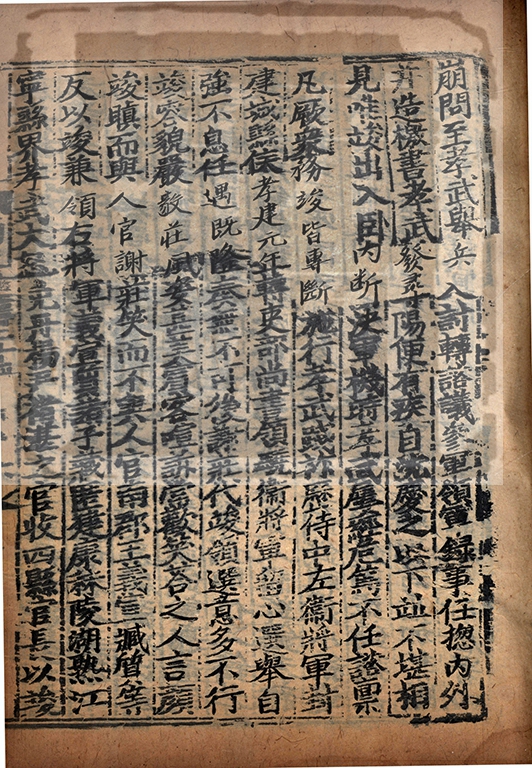 崩問至孝武舉兵入討轉諮議參軍領軍錄事任揔內
并造檄書孝武發尋陽便有疾自沈慶之以下並不堪相
見唯竣出入臥內斷決軍機時孝武屢經危篤不任諮稟
凡厥衆務竣皆專斷施行孝武踐祚歷侍中左衞將軍封
建城縣侯孝建元年轉吏部尚書領驍衞將軍留心選舉自
強不息任遇既隆奏無不可後謝莊代竣領選意多不行
竣容貌嚴毅莊風姿甚美賓客喧訴常歡笑答之人言顏
竣瞋而與人官謝莊笑而不與人官南郡王義宣臧質等
反以竣兼領右將軍義宣質諸子藏匿建康秣陵湖熟江
寧縣界孝武大怒免丹楊尹褚湛之官收四縣官長以竣